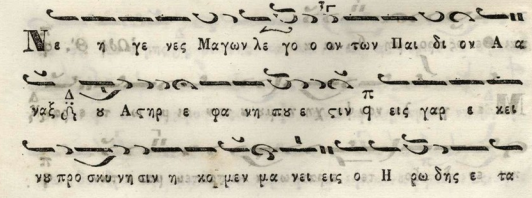 Νε η γε νες Μαγων λε γο ο ον των Παι δι ον Α α
ναξ ου Αςηρ ε φα νη που ε ςιν εις γαρ ε κει
νου προ σκυ νη σιν η κο μεν μα νει εις ο Η ρω δης ε τα